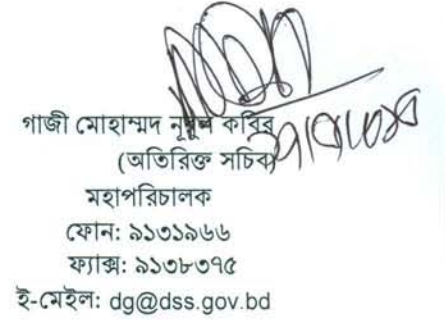 গাজী মোহাম্মদ নূরুল কবির
(অতিরিক্ত সচিব)
মহাপরিচালক
ফোন: ৯১৩১৯৬৬
ফ্যাক্স: ৯১৩৮৩৭৫
ই-মেইল: dg@dss.gov.bd